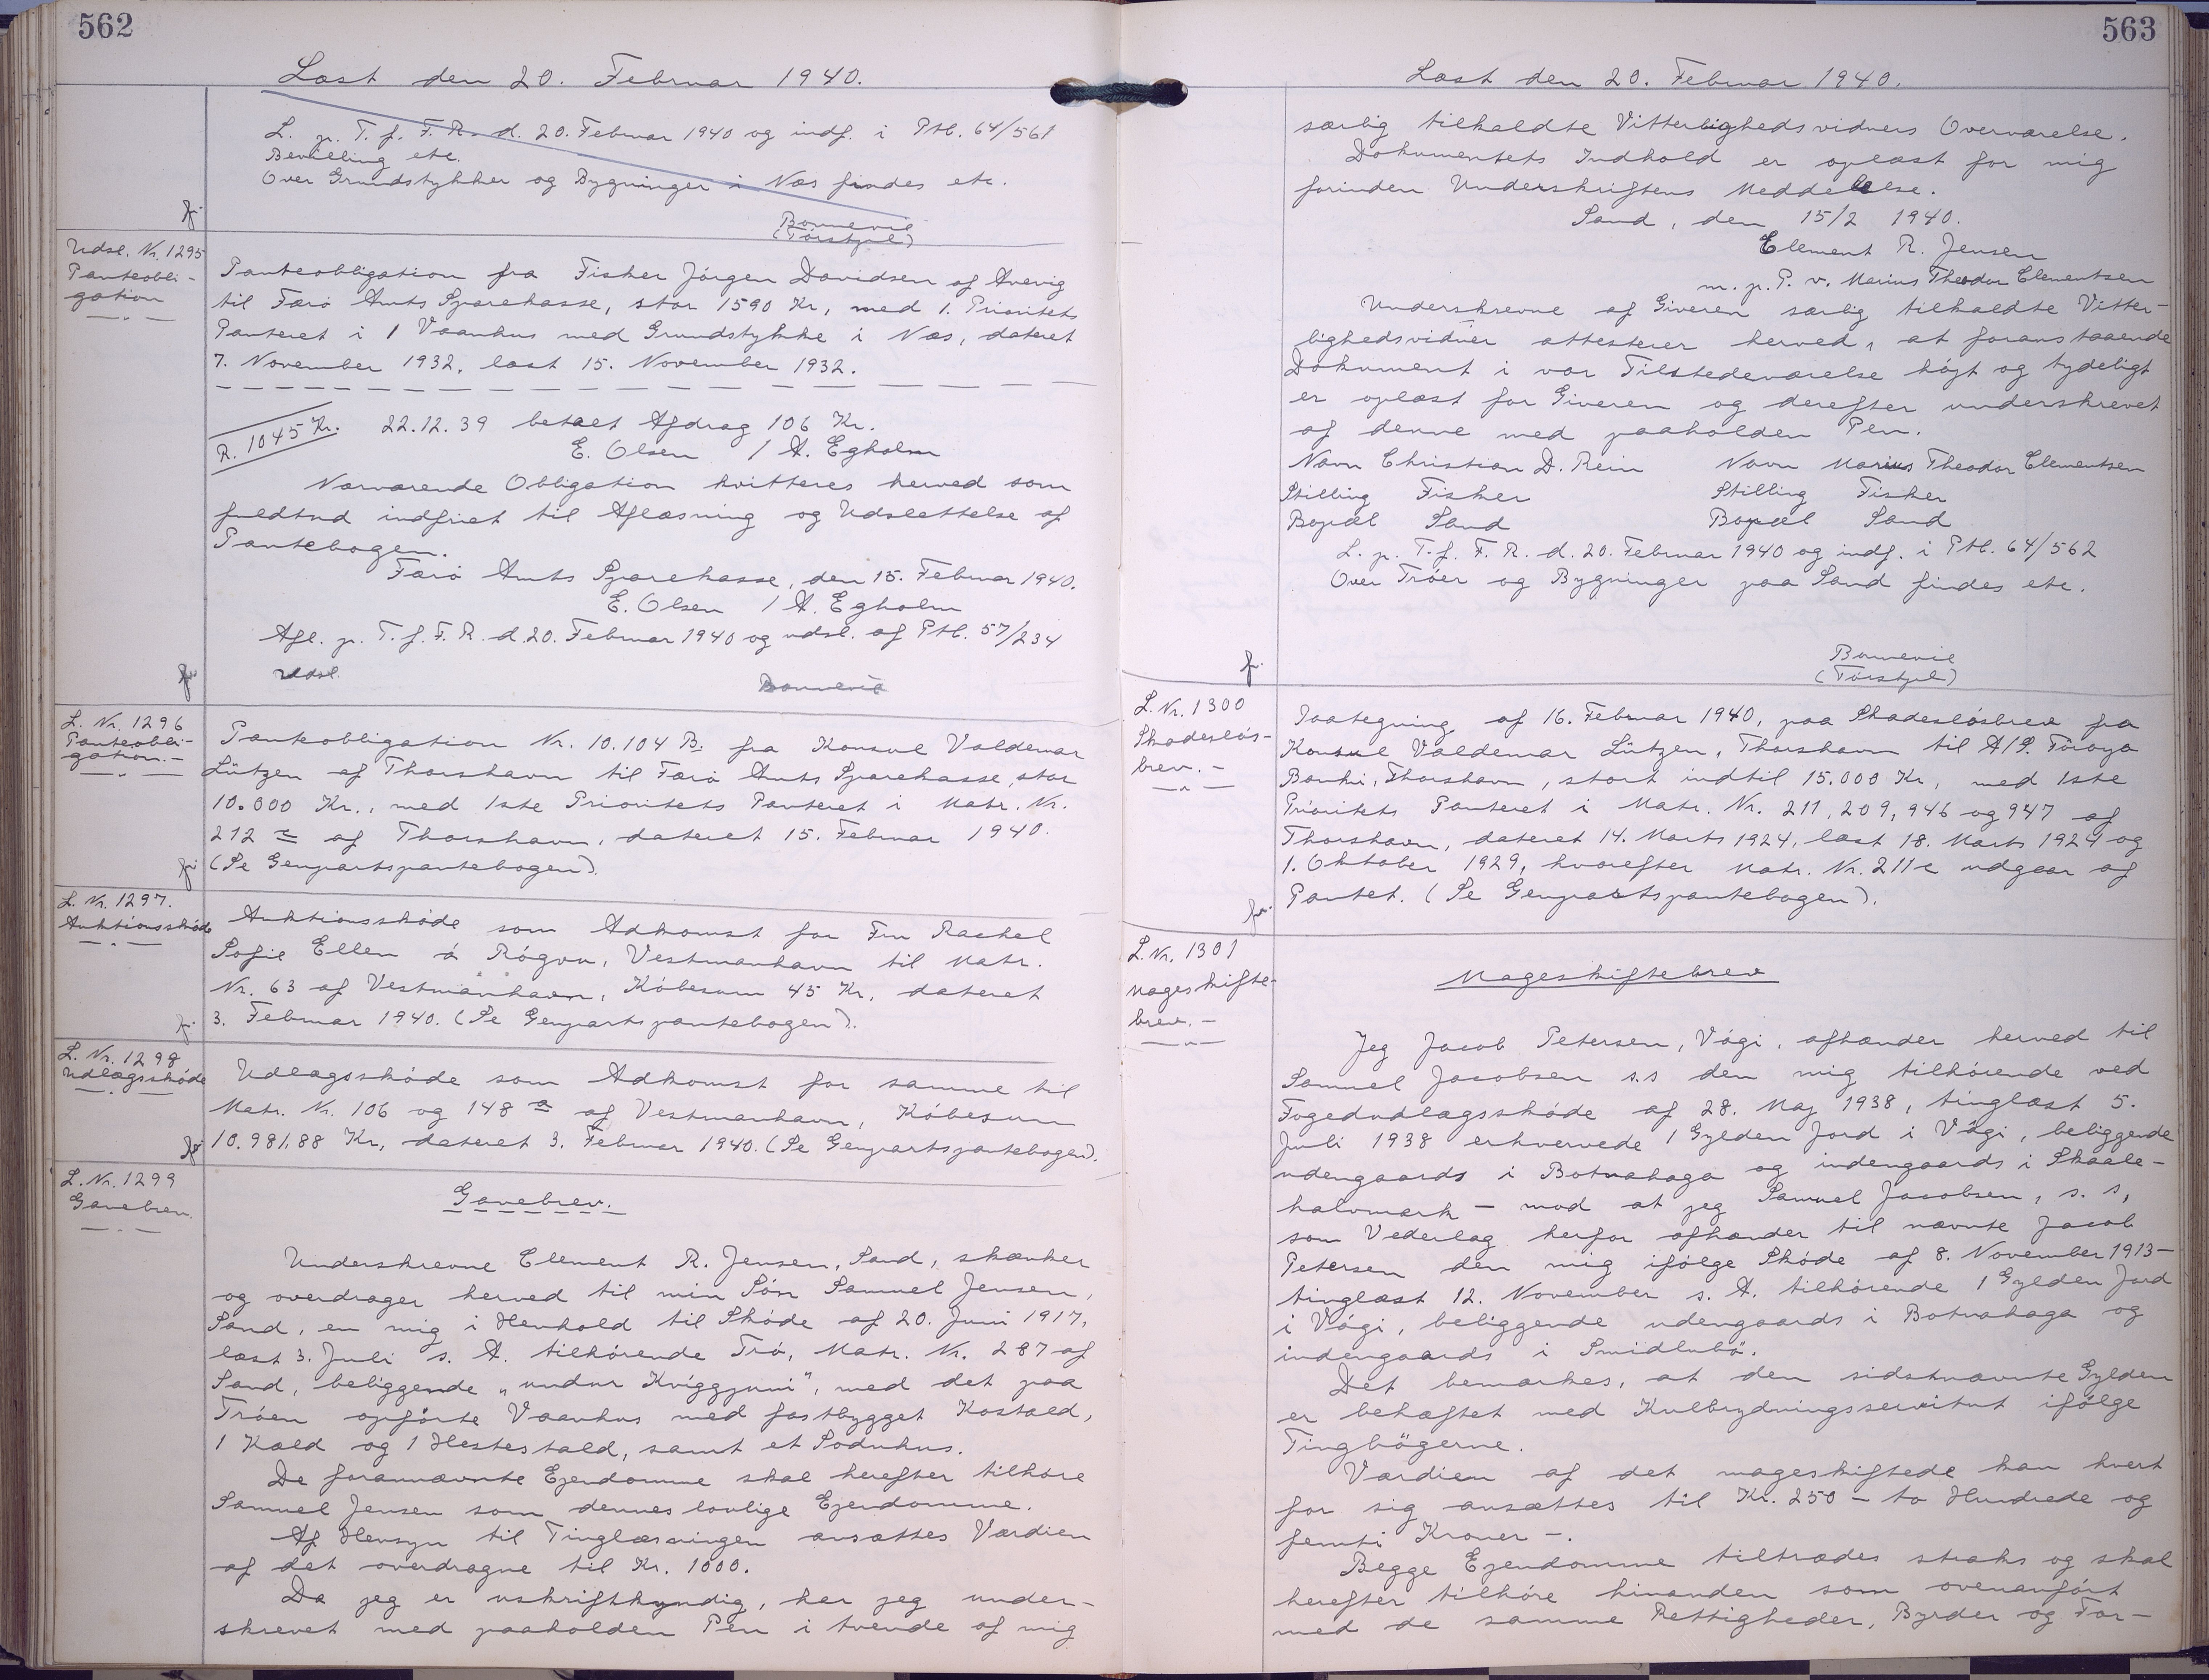 562
Læst den 20. Februar 1940.
L. p. T. f. F. R. d. 20. Februar 1940 og indf. i Ptb. 64/561
Bevilling etc.
Over Grundstykker og Bygninger i Næs findes etc.
Bonnevie
(Tórstjul)
Udsl. Nr. 1295
Panteobli-
gation
Panteobligation fra Fisker Jórgen Davidsen af Avevig
til Færø Amts Sparekasse, stor 1590 Kr, med 1. Prioritets
Panteret i 1 Vaanhus med Grundstykke i Næs, dateret
7. November 1932, læst 15. November 1932.
R. 1045 Kr. 22.12.39 betalt Afdrag 106 Kr.
E. Olsen / A. Egholm
Nærværende Obligation kvitteres herved som
fuldtud indfriet til Aflæsning og Udslettelse af
Pantebogen.
Færö Amts Sparekasse, den 15. Februar 1940.
E. Olsen / A. Egholm
Afl. p. T. f. F. R. d. 20. Februar 1940 og udsl. af Ptb. 57/234
Udsl.
Bonnevie
L. Nr. 1296
Panteobli-
gation.-
Panteobligation Nr. 10.104 B. fra Konsul Valdemar
Lützen af Thorshavn til Færö Amts Sparekasse, stor
10.000 Kr., med 1ste Prioritets Panteret i Matr. Nr.
212 c af Thorshavn, dateret 15. Februar 1940.
(Se Genpartspantebogen).
L. Nr. 1297.
Auktionsskóde
Auktionsskóde som Adkomst for Fru Rachel
Sofie Ellen á Rógvu, Vestmanhavn til Matr.
Nr. 63 af Vestmanhavn, Kóbesum 45 Kr, dateret
3. Februar 1940. (Se Genpartspantebogen).
L. Nr. 1298
Udlægsskóde
Udlægsskóde som Adkomst for samme til
Matr. Nr. 106 og 148 a af Vestmanhavn, Kóbesum
10.981,88 Kr, dateret 3. Februar 1940. (Se Genpartspantebogen).
L. Nr. 1299
Gavebrev.
Gavebrev.
Underskrevne Clement R. Jensen, Sand, skænker
og overdrager herved til min Sön Samuel Jensen,
Sand, en mig i Henhold til Skóde af 20. Juni 1917,
læst 3. Juli s. A. tilhórende Tró, Matr. Nr. 287 af
Sand, beliggende „undur Kviggjuni", med det paa
Tróen opfórte Vaanhus med fastbygget Kostald,
1 Kæld og 1 Hestestald, samt et Sodnhus.
De forannævnte Ejendomme skal herefter tilhóre
Samuel Jensen som dennes lovlige Ejendomme.
Af Hensyn til Tinglæsningen ansættes Værdien
af det overdragne til Kr. 1000.
Da jeg er uskriftkyndig, har jeg under-
skrevet med paaholden Pen i tvende af mig
563
Læst den 20. Februar 1940.
særlig tilkaldte Vitterlighedsvidners Overværelse.
Dokumentets Indhold er oplæst for mig
forinden Underskriftens Meddelelse.
Sand, den 15/2 1940.
Clement R. Jensen
m. p. P. v. Marius Theodor Clementsen
Underskrevne af Giveren særlig tilkaldte Vitter-
lighedsvidner attesterer herved, at foranstaaende
Dokument i vor Tilstedeværelse hójt og tydeligt
er oplæst for Giveren og derefter underskrevet
af denne med paaholden Pen.
Navn Christian D. Rein Navn Marius Theodor Clementsen
Stilling Fisker Stilling Fisker
Bopæl Sand Bopæl Sand
L. p. T. f. F. R. d. 20. Februar 1940 og indf. i Ptb. 64/562
Over Tróer og Bygninger paa Sand findes etc.
Bonnevie
(Tórstjul)
L. Nr. 1300
Skadeslós-
brev. -
Paategning af 16. Februar 1940, paa Skadeslósbrev fra
Konsul Valdemar Lützen, Thorshavn til A/S. Föroya
Banki, Thorshavn, stort indtil 15.000 Kr, med 1ste
Prioritets Panteret i Matr. Nr. 211, 209, 946 og 947 af
Thorshavn, dateret 14. Marts 1924, læst 18. Marts 1924 og
1. Oktober 1929, hvorefter Matr. Nr. 211 c udgaar af
Pantet. (Se Genpartspantebogen).
L. Nr. 1301
Mageskifte-
brev. -
Mageskiftebrev
Jeg Jacob Petersen, Vági, afhænder herved til
Samuel Jacobsen s.s den mig tilhórende ved
Fogedudlægsskóde af 28. Maj 1938, tinglæst 5.
Juli 1938 erhvervede 1 Gylden Jord i Vági, beliggende
udengaards i Botnahaga og indengaards i Skaale-
halvmark - mod at jeg Samuel Jacobsen, s. s,
som Vederlag herfor afhænder til nævnte Jacob
Petersen den mig ifölge Skóde af 8. November 1913 -
tinglæst 12. November s. A. tilhórende 1 Gylden Jord
i Vági, beliggende udengaards i Botnahaga og
indengaards i Smidlubö.
Det bemærkes, at den sidstnævnte Gylden
er behæftet med Kulbrydningsservitut ifölge
Tingbögerne.
Værdien af det mageskiftede kan hvert
for sig ansættes til Kr. 250 - to Hundrede og
femti Kroner -.
Begge Ejendomme tiltrædes straks og skal
herefter tilhóre hinanden som ovenanfórt
med de samme Rettigheder, Byrder og For-